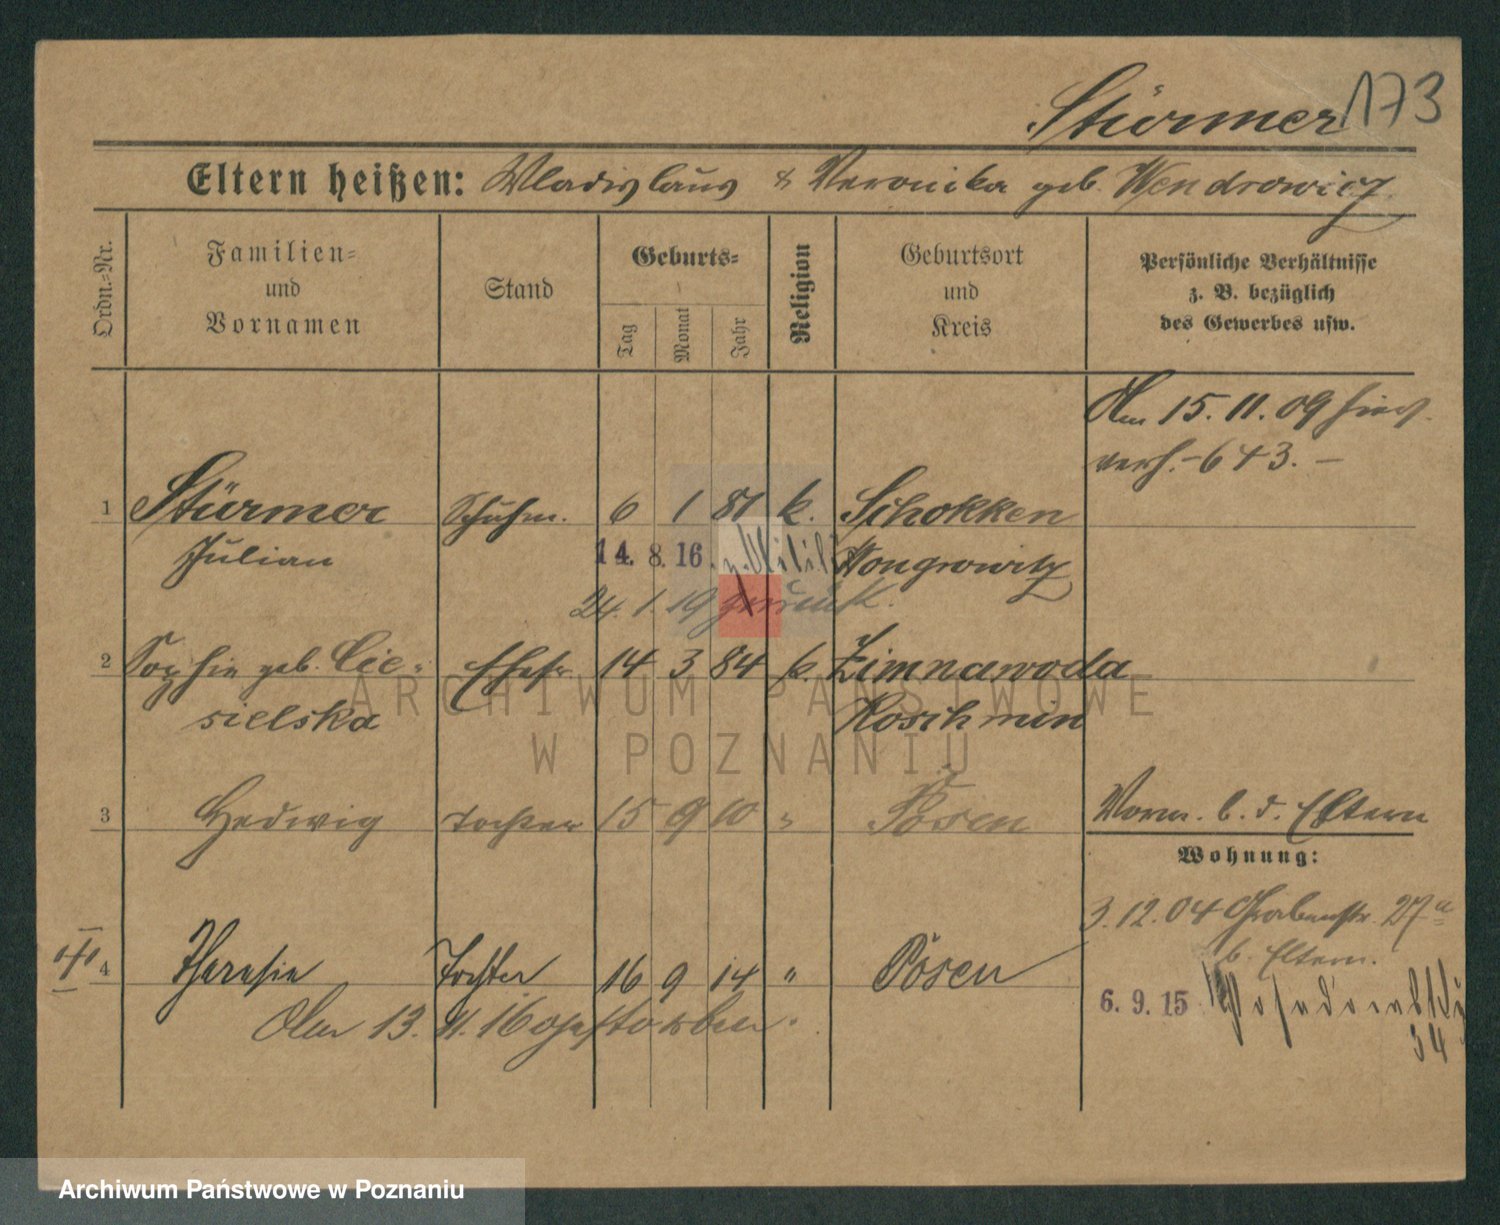 173
Stürmer
Eltern heißen: Wladislaus & Veronika geb. Wendrowicz
Ordn.=Nr.
Familien=
und
Vornamen
Stand
Geburts=
Tag
Monat
Jahr
Religion
Geburtsort
und
Kreis
Persönliche Verhältnisse
z. B. bezüglich
des Gewerbes usw.
Am 15. 11. 09 hier
verh. - 643. -
1 Stürmer Schuhm. 6 1 81 k. Schokken
Julian Wongrowitz
14. 8. 16. z. Militär
24. 1. 19 zurück.
2 Sophie geb. Cie- Ehefr. 14 3 84 k. Zimnawoda
sielska Koschmin
3 Hedwig Tochter 15 9 10 " Posen
Vorm. b. d. Eltern
Wohnung:
3. 12. 04 Grabenstr. 27a
b. Eltern.
4 Theresie Tochter 16 9 14 " Posen
Am 13. 11. 16 gestorben.
6. 9. 15
34
ARCHIWUM PAŃSTWOWE
W POZNANIU
Archiwum Państwowe w Poznaniu